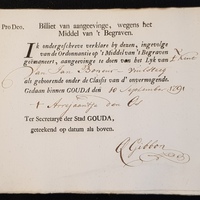 Pro Deo.
Billiet van aangeevinge, wegens het
Middel van 't Begraven.
Ik ondergeschreve verklare by dezen, ingevolge
van de Ordonnantie op 't Middel van 't Begraven
geëmaneert, aangeevinge te doen van het Lyk van 't kind
van Jan
als gehoorende onder de Classis van d' onvermogende.
Gedaan binnen GOUDA den 10 September 1791
Ter Secretarye der Stad GOUDA,
geteekend op datum als boven.